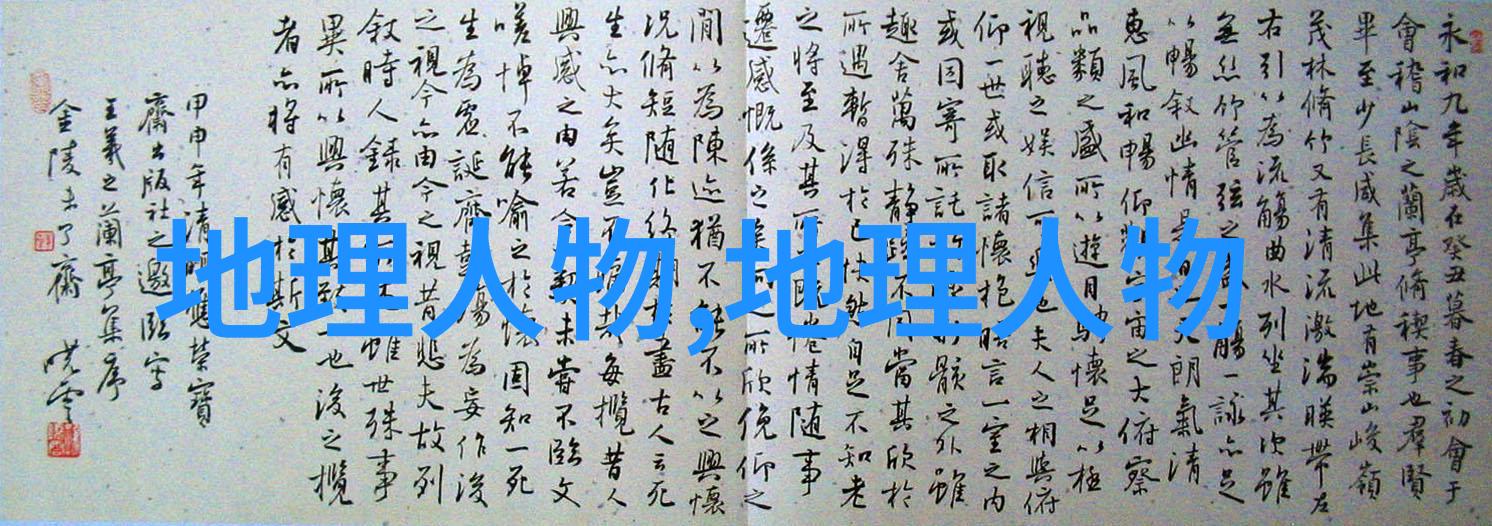 永和九年歲在癸丑暮春之初會于
會稽山陰之蘭亭脩稧事也羣賢
畢至少長咸集此地有崇山峻嶺
茂林脩竹又有清流激湍暎帶左
右引以為流觴曲水列坐其次雖
無絲竹管弦之盛一觴一詠亦足
以暢敘幽情是日也天朗氣清
惠風和暢仰觀宇宙之大俯察
品類之盛所以遊目騁懷足以極
視聽之娛信可樂也夫人之相與俯
仰一世或取諸懷抱晤言一室之內
或因寄所託放浪形骸之外雖
趣舍萬殊靜躁不同當其欣於
所遇暫得於己快然自足不知老
之將至及其所既惓情隨事
遷感慨係之矣向之所欣俛仰之
間以為陳迹猶不能不以之興懷
況脩短隨化終期於盡古人云死
生亦大矣豈不痛哉每攬昔人
興感之由若合一契未嘗不臨文
嗟悼不能喻之於懷固知一死
生為虛誕齊彭殤為妄作後
之視今亦由今之視昔悲夫故列
敘時人錄其所述雖世殊事
異所以興懷其致一也後之攬
者亦將有感於斯文
甲申年清明應榮寶
齋出版社之邀臨寫
王羲之蘭亭集序
金陵未了齋
地理人物,地理人物